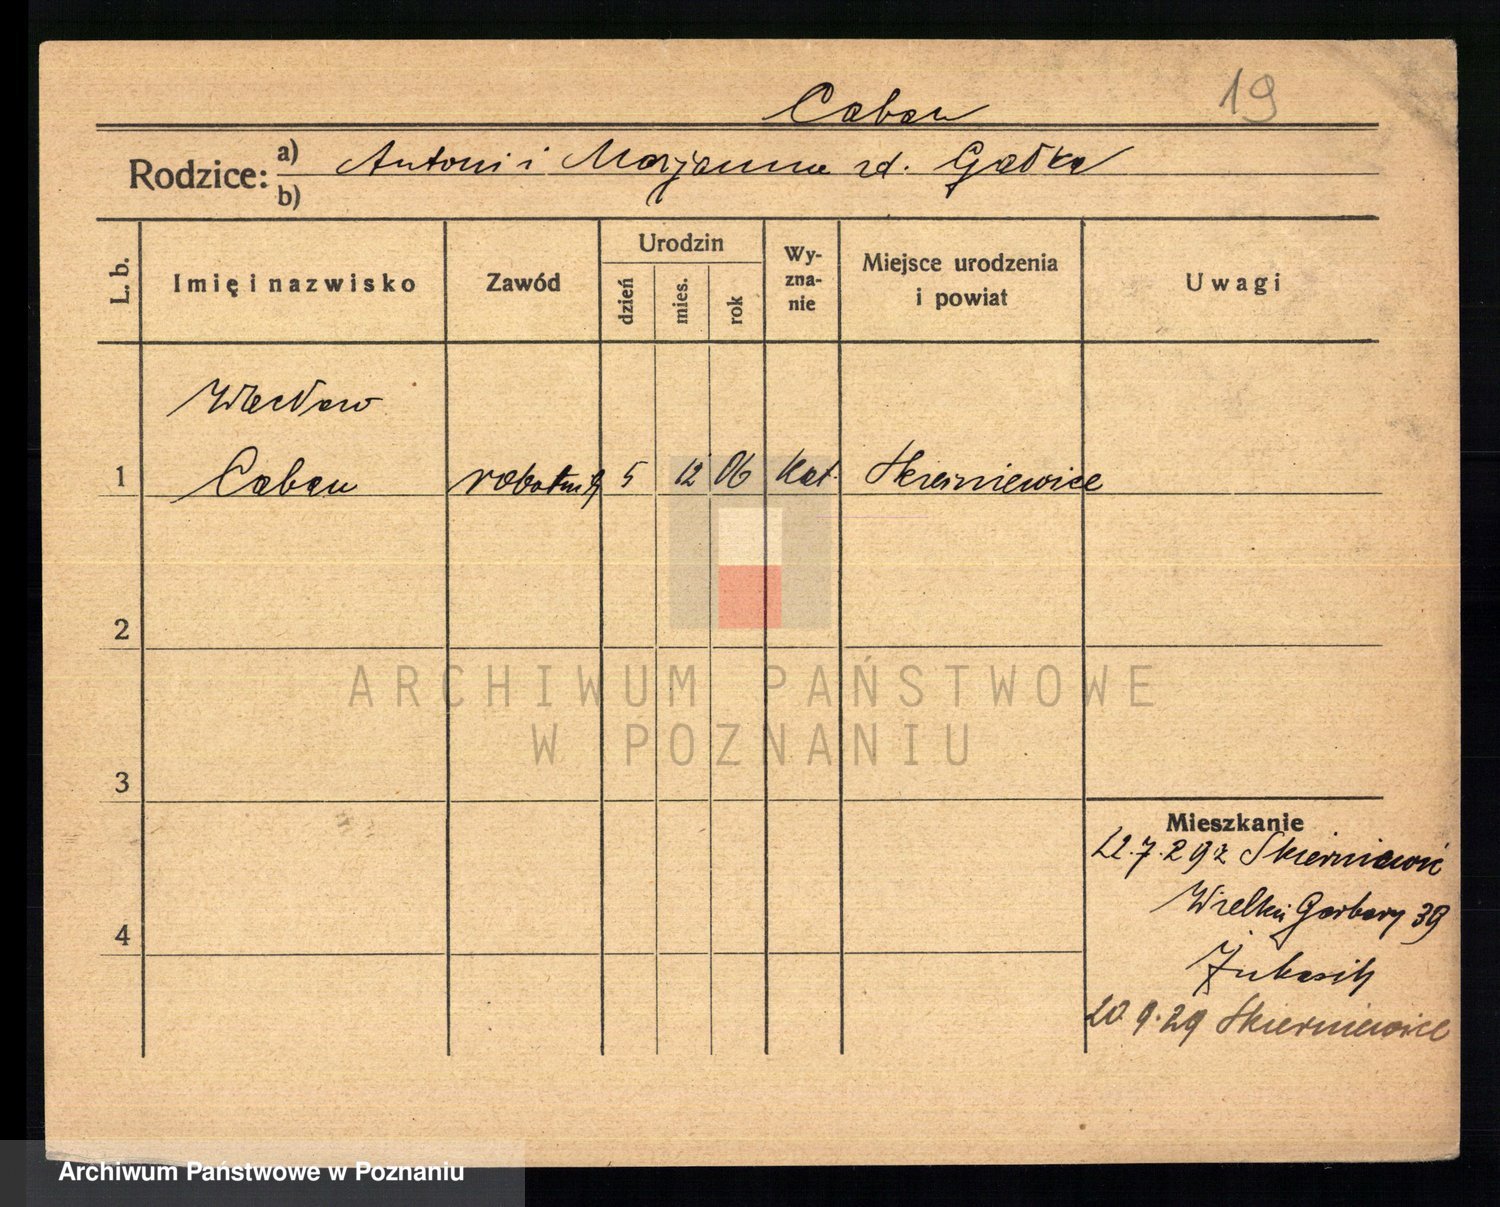 19
Caban
Rodzice: a) Antoni i Marjanna zd. Gałka
b)
L. b. Imię i nazwisko Zawód Urodzin dzień mies. rok Wy-zna-nie Miejsce urodzenia i powiat Uwagi
Wacław
1 Caban robotnik 5 12 06 kat. Skierniewice
2
3
4
Mieszkanie
22.7.29 z Skierniewic
Wielkie Garbary 39
20.9.29 Skierniewice
ARCHIWUM PAŃSTWOWE
W POZNANIU
Archiwum Państwowe w Poznaniu